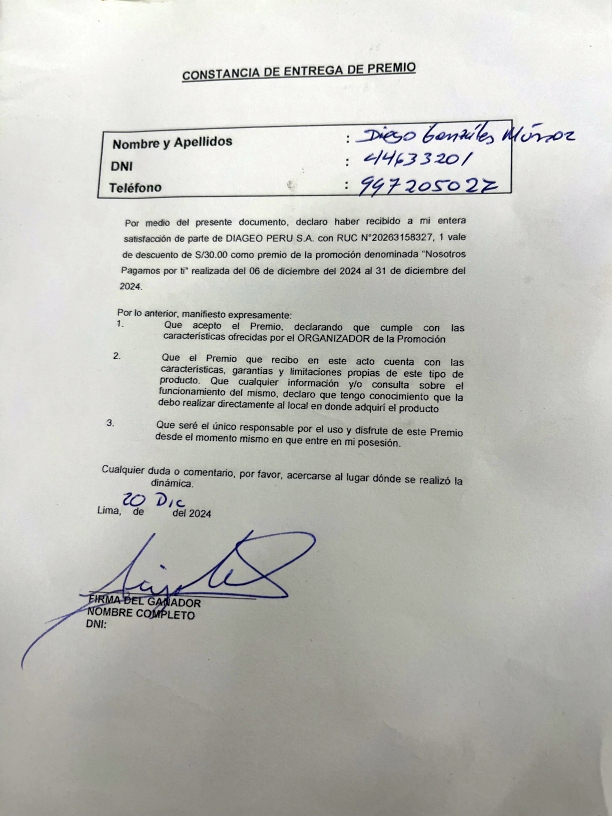 CONSTANCIA DE ENTREGA DE PREMIO
Nombre y Apellidos : Diego Gonzáles Múñoz
DNI : 44633201
Teléfono : 997205027
Por medio del presente documento, declaro haber recibido a mi entera
satisfacción de parte de DIAGEO PERU S.A. con RUC N°20263158327, 1 vale
de descuento de S/30.00 como premio de la promoción denominada "Nosotros
Pagamos por ti" realizada del 06 de diciembre del 2024 al 31 de diciembre del
2024.
Por lo anterior, manifiesto expresamente:
1. Que acepto el Premio, declarando que cumple con las
características ofrecidas por el ORGANIZADOR de la Promoción
2. Que el Premio que recibo en este acto cuenta con las
características, garantías y limitaciones propias de este tipo de
producto. Que cualquier información y/o consulta sobre el
funcionamiento del mismo, declaro que tengo conocimiento que la
debo realizar directamente al local en donde adquirí el producto
3. Que seré el único responsable por el uso y disfrute de este Premio
desde el momento mismo en que entre en mi posesión.
Cualquier duda o comentario, por favor, acercarse al lugar dónde se realizó la
dinámica.
Lima, 20 de Dic del 2024
FIRMA DEL GANADOR
NOMBRE COMPLETO
DNI: